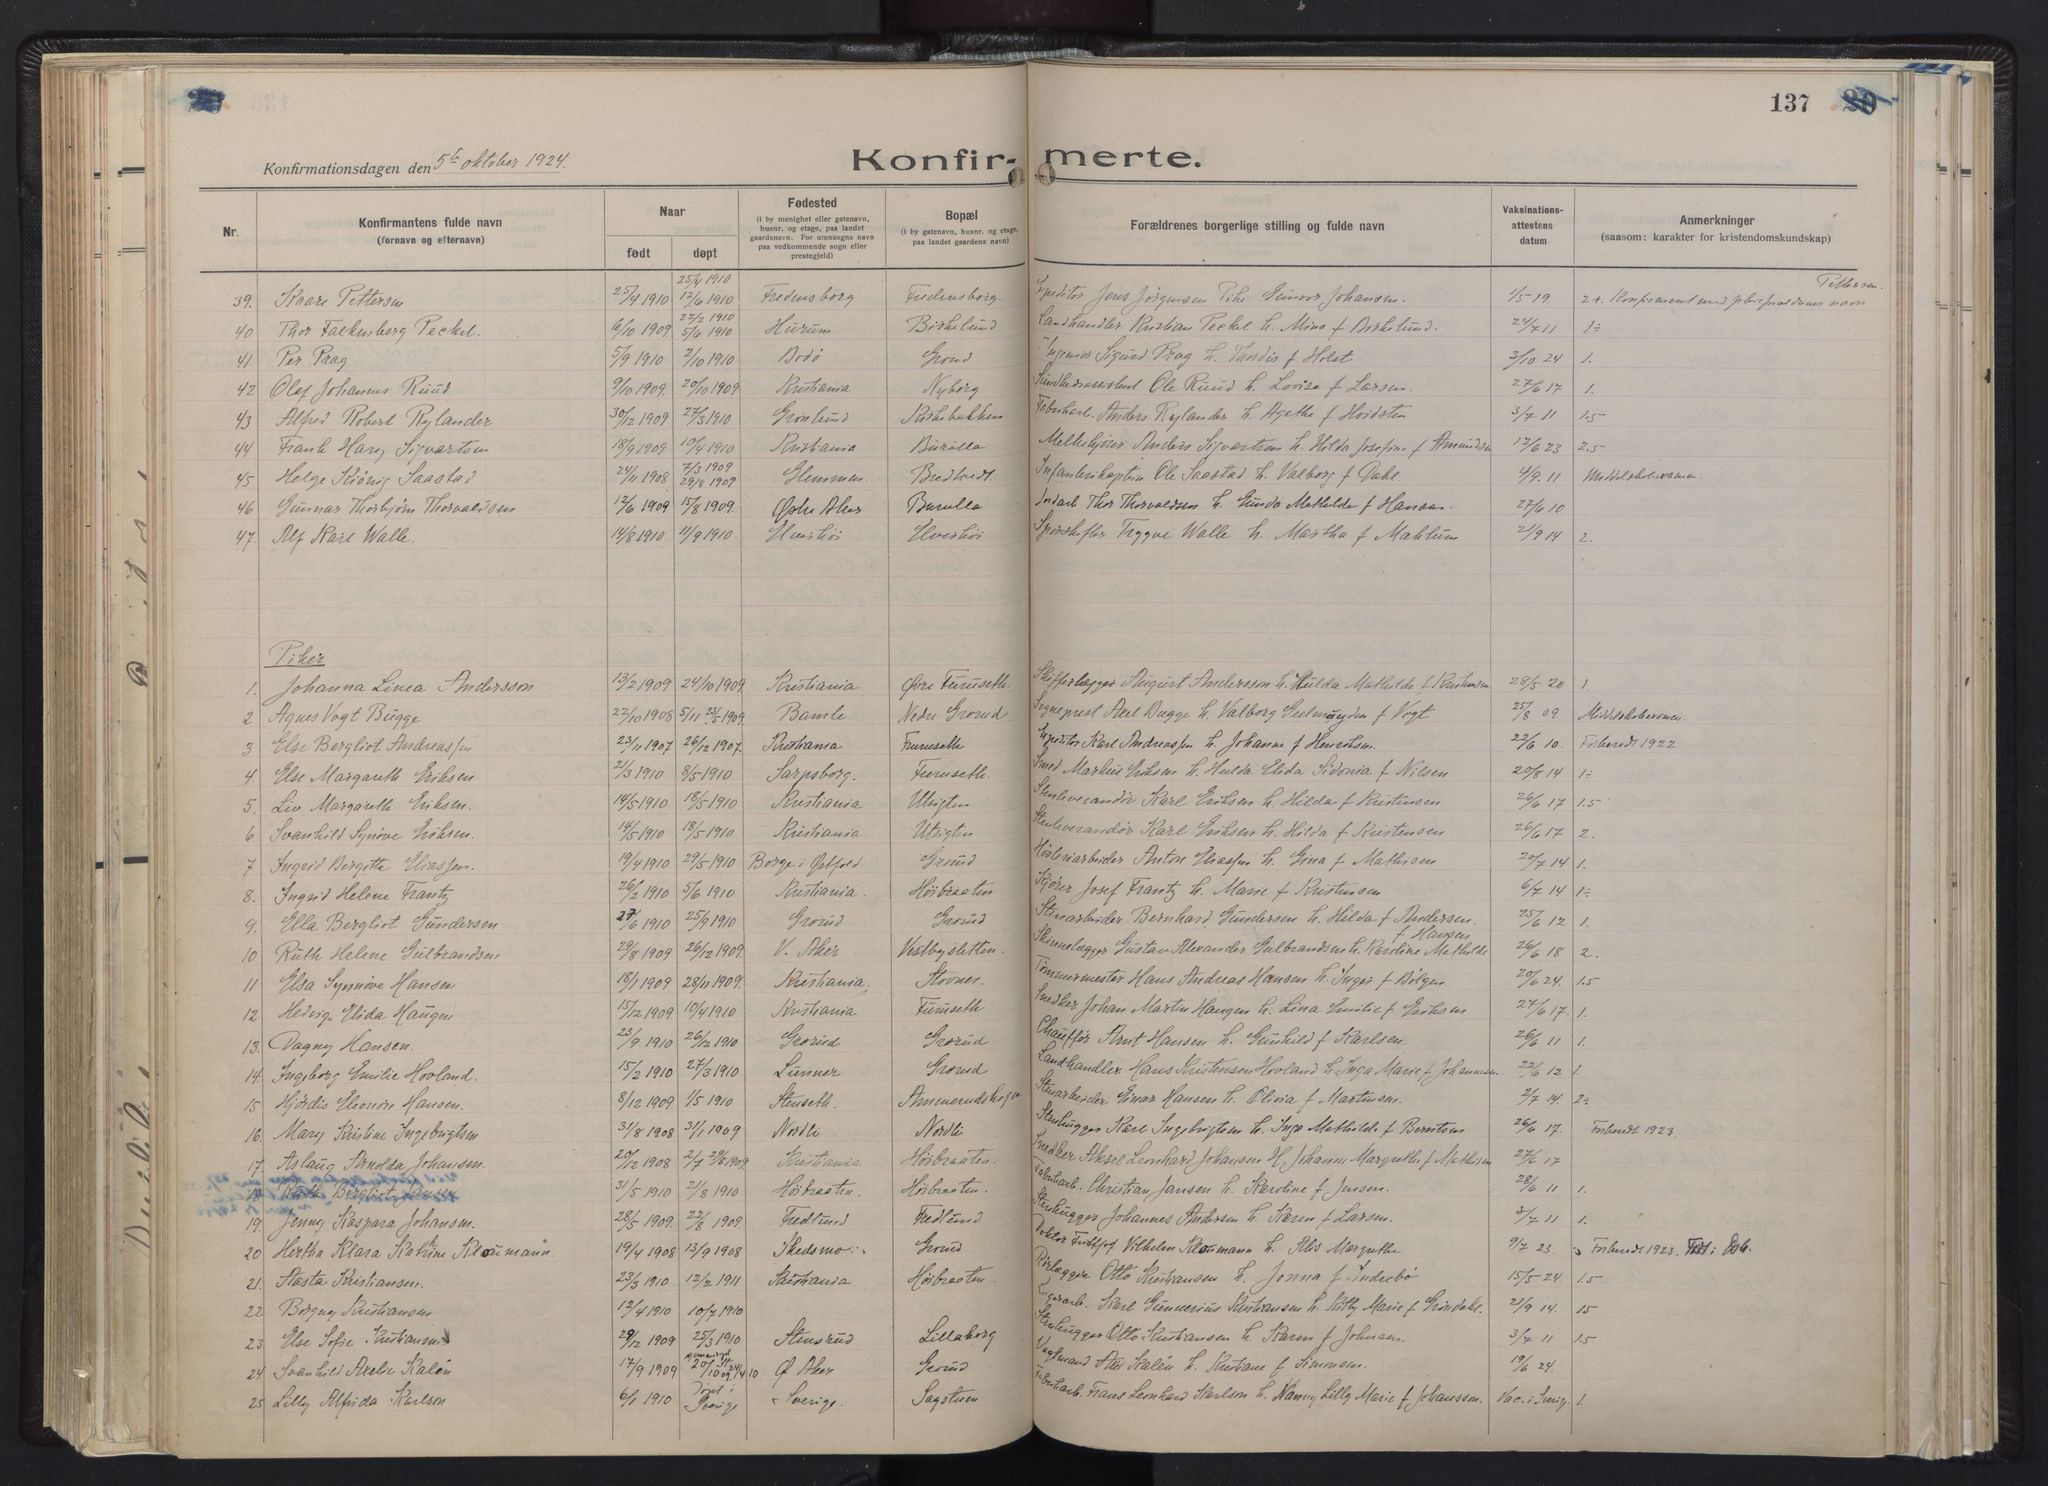 137
Konfirmationsdagen den 5te oktober 1924.
Konfir- merte.
Nr.
Konfirmantens fulde navn
(fornavn og efternavn)
Naar
født
døpt
Fødested
(i by menighet eller gatenavn, husnr. og etage, paa landet gaardsnavn. For utensogns navn paa vedkommende sogn eller prestegjeld)
Bopæl
(i by gatenavn, husnr. og etage, paa landet gaardens navn)
Forældrenes borgerlige stilling og fulde navn
Vaksinations-attestens datum
Anmerkninger
(saasom: karakter for kristendomskundskap)
39. Kaare Pettersen 25/4 1910 25/4 1910 12/6 1910 Fredensborg Fredensborg. Expeditør Jens Jörgensen Gunvor Johansen. 1/5 19. 2+ Pettersen.
40 Thor Falkenberg Peckel. 6/10 1909 22/2 1910 5/6 1910 Hurum Birkelund Landhandler Kristian Peckel h. Mina f Birkelund. 24/7 11 1÷
41 Per Prag 5/9 1910 2/10 1910 Bodö Grorud Ingeniör Sigurd Prag h. Thordis f Holst 3/10 24 1.
42 Olaf Johannes Ruud 9/10 1909. 20/10 1909 Kristiania Nyborg Ole Ruud h. Lovise f Larsen. 27/6 17 1.
43 Alfred Robert Rylander 30/12 1909 27/3 1910 Grönlund Kirkebakken Fabrikarb. Anders Rylander h. Agathe f Hoidsten 3/7 11 1.5
44 Frank Harry Sigvartsen 18/9 1909 10/4 1910 Kristiania Burulla Melkekjörer Anders Sigvartsen h. Hilda Josefine f Amundsen 12/6 23 2.5
45 Helge Saastad 24/11 1908 7/3 1909 29/8 1909 Glemmen. Bredtvedt Infanterikaptein Ole Saastad h. Valborg f Dahl 4/9. 11 Middelskoleexamen.
46 Gunnar Thorbjörn Thorvaldsen 12/6 1909 15/8 1909. Östre Aker Burulla Jordarb Thor Thorvaldsen h. Gunda Mathilde f Hansen. 27/6 10
47. Alf Karl Walle. 14/8 1910 11/9 1910 Trygve Walle h. Martha f Mahlum 21/9 14 2.
Piker
1. Johanna Linea Andersson 13/2 1909. 24/10 1909. Kristiania Övre Furuseth. August Andersson h. Hulda Mathilde f Kristensen 28/5 20 1.
2 Agnes Vogt Bugge 22/10 1908 5/11 23/5 1909. Bamle Nedre Grorud Sogneprest Axel Bugge h. Valborg Geelmuyden f Vogt 25/8 09. Middelskoleexamen
3 Else Bergliot Andreassen 23/11 1907 26/12 1907. Kristiania Furuseth Expeditör Karl Andreassen h. Johanne f Henriksen 22/6 10. Forberedt 1922
4 Else Margareth Eriksen 21/3 1910 8/5 1910 Sarpsborg. Furuseth. Smed Markus Eriksen h. Hulda Elida Sidonia f Nilsen 20/8 14 1÷
5. Liv Margareth Eriksen. 14/5 1910 18/5 1910 Kristiania Utsigten Stenleverandör Karl Eriksen h. Hilda f Kristensen 26/6 17 1.5
6. Svanhild Synöve Eriksen. 14/5 1910 18/5 1910 Kristiania Utsigten Stenleverandör Karl Eriksen h. Hilda f Kristensen 26/6 17 2.
7 Ingrid Bergitte Eliassen. 19/4 1910 29/5 1910 Borge i Østfold Grorud Anton Eliassen h. Gina f Mathisen 20/7 14 1.
8. Ingrid Helene Frantz 26/2 1910 5/6 1910 Kristiania. Höibraaten Kjörer Josef Frantz h. Marie f Kristensen 6/7 14 1÷
9. Ella Bergliot Gundersen 27/6 1910 25/9 1910 Grorud Grorud Stenarbeider Bernhard Gundersen h. Hilda f Andersen. 25/6 12 1.
10 Ruth Helene Gulbrandsen 29/8 1909 26/12 1909. V. Aker Vestbysletten. Skinnelægger Gustav Alexander Gulbrandsen h. Karoline Mathilde f Hansen 26/6 18 2.
11 Elsa Synnöve Hansen 18/1 1909 28/11 1909. Kristiania. Stovner. Tömmermester Hans Andreas Hansen h. Inger f Bölgen 20/6 24. 1.5
12 Hedvig Elida Haugen 15/12 1909 10/4 1910 Kristiania Furuseth Snedker Johan Martin Haugen h. Lina Emilie f Eriksen 27/6 17. 1.
13. Dagny Hansen. 23/9 1910 26/12 1910 Grorud Grorud Chauffør Arnt Hansen h. Gunhild f Karlsen. 26/6 11 1.
14. Ingeborg Emilie Hovland. 15/2 1910 27/3 1910 Lunner Grorud Landhandler Hans Kristensen Hovland h. Inga Marie f Johannesen. 22/6 12 1.
15 Hjördis Eleonore Hansen. 8/12 1909. 1/5 1910 Stenseth. Ammerudskogen Stenarbeider Einar Hansen h. Olivia f Martinsen. 2/7 14. 2÷
16. Mary Kristine Ingebrigtsen 31/8 1908 31/1 1909. Nordli Nordli Stenhugger Karl Ingebrigtsen h. Inga Mathilde f Berntsen 26/6 17. Forberedt 1923
17. Aslaug Arnolda Johansen. 20/12 1908 2/7 29/8 1909. Kristiania Höibraaten. Snedker Aksel Leonhard Johansen H. Johanne Margrethe f Mathisen 27/6 17
18. Ruth Bergliot Jansen 31/5 1910 21/8 1910 Höibraaten. Höibraaten. Fabrikarb. Christian Jansen h. Karoline f Jensen. 28/6 11 1.
19. Jenny Kaspara Johansen. 28/5 1909. 22/8 1909. Fredlund Fredlund Stenhugger Johannes Andersen h. Karen f Larsen. 3/7 11 1.
20 Hertha Klara Katrine Kloumann. 19/4 1908 13/9 1908 Skedsmo Grorud Doktor Fridtjof Vilhelm Kloumann h. Alis Margrethe 9/7 23. Forberedt 1923.
21. Aasta Kristiansen. 23/3 1910 12/2 1911 Kristiania Höibraaten. Rörlægger Otto Kristiansen h. Jenna f Indrebö 15/5 24. 1.5
22 Borgny Kristiansen 13/4 1910 10/7 1910 Karl Gunnerius Kristiansen h. Kitty Marie f Gröndahl. 21/9 14. 1.5
23 Else Sofie Kristiansen 29/12 1909 25/3 1910 Stensrud Lillaborg Stenhugger Otto Kristiansen h. Karen f Johnsen. 3/7 11 1.5
24 Svanhild Axelie Kalén 17/9 1909 20/10 09. 24/4 10 Ø Aker Grorud Vagtmand Axel Kalén h. Kristiane f Simonsen. 19/6 24.
25 Lilly Alfrida Karlson 6/1 1910 döpt i Sverige Sverige. Sagstuen Fabrikarb. Frans Leonhard Karlson h. Nanny Lilly Marie f Johanssen. Vac. i Sverig. 1.